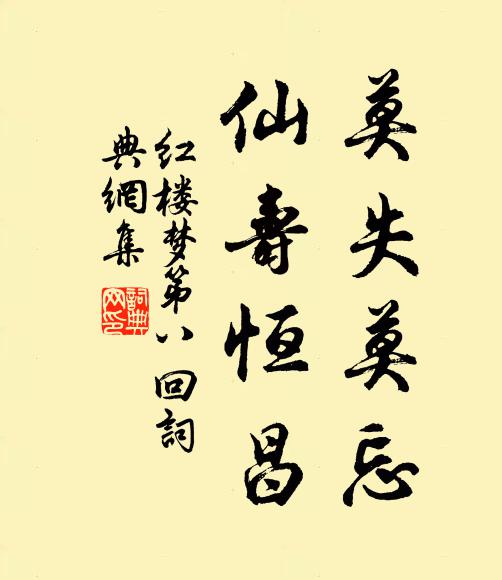 莫失莫忘
仙壽恒昌
红楼梦第八回詞
典網集
詞典
网印